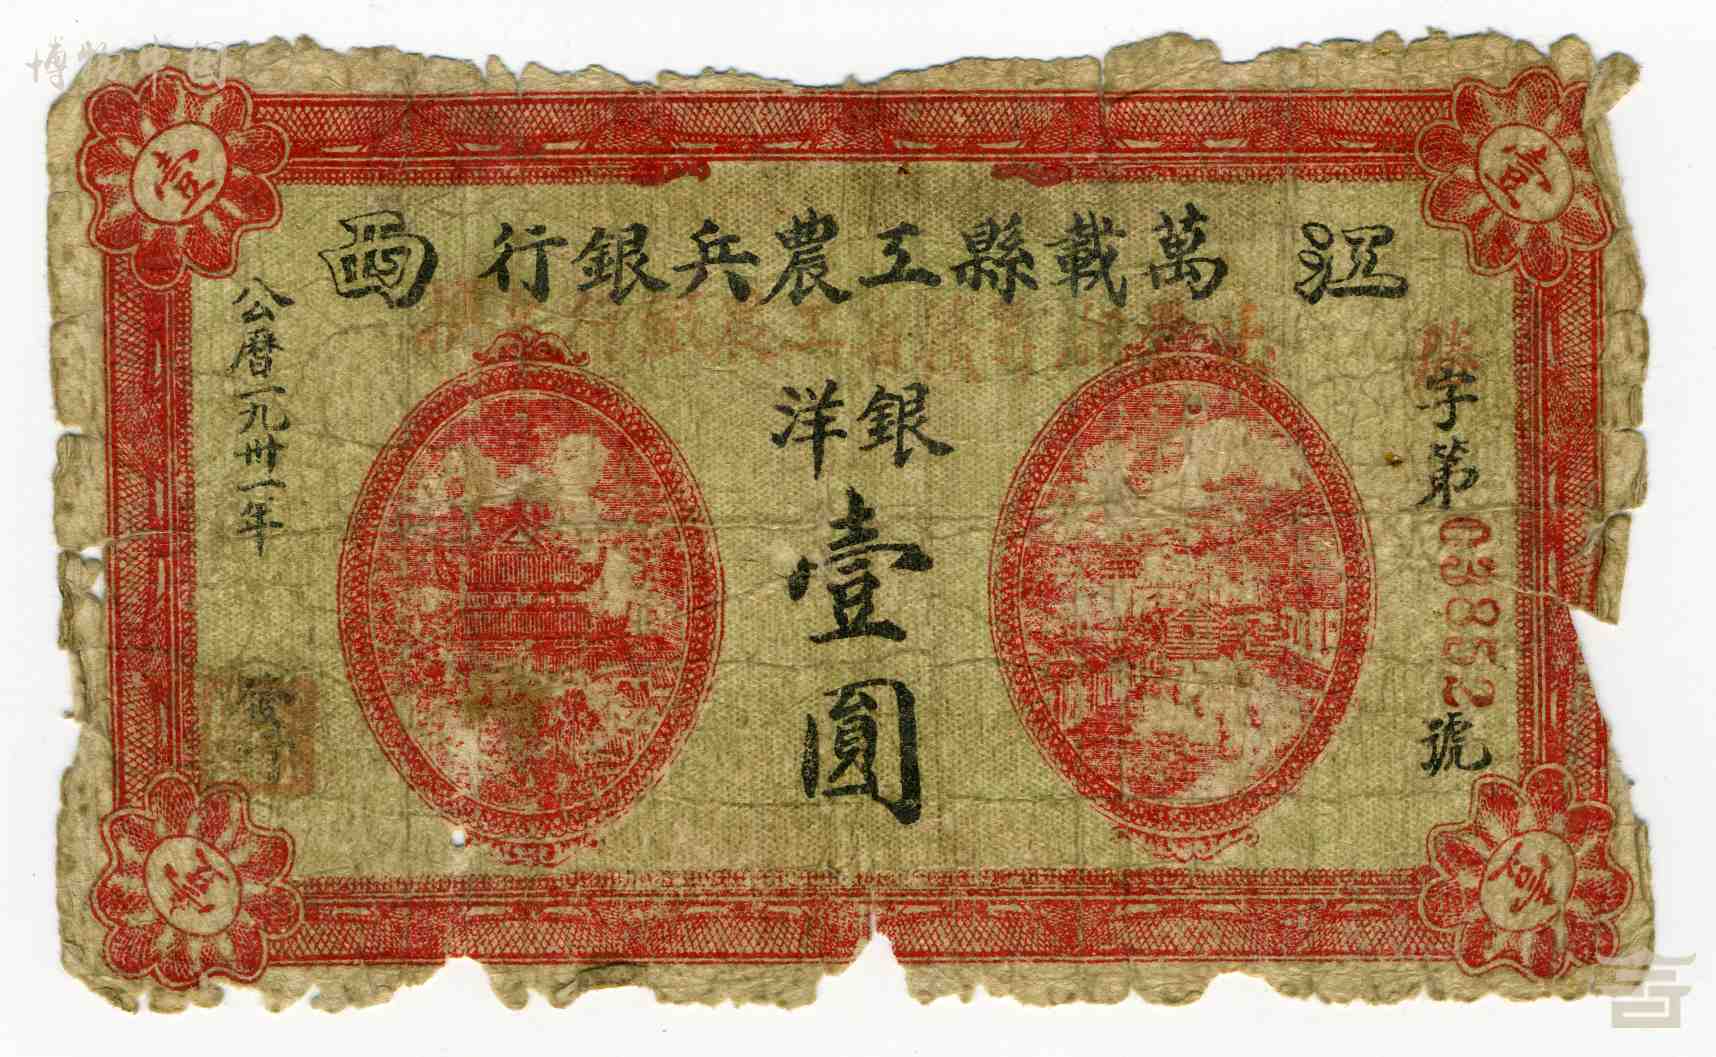 博物中国
江 萬載縣工農兵銀行 西
銀洋
壹圓
字第03852號
公曆一九卅一年
壹
壹
壹
壹